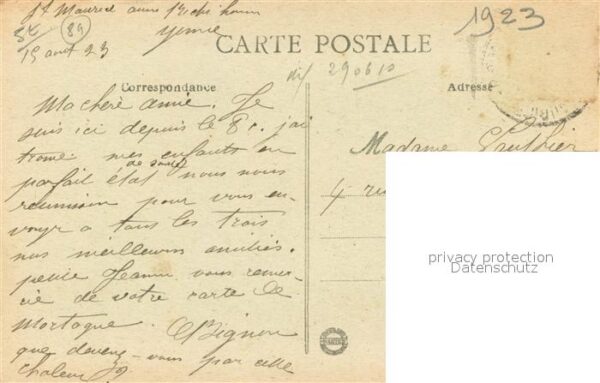 St Maurice aux Riches hommes
Yonne
St
89
15 aout 23
1923
CARTE POSTALE
290610
Correspondance
Adresse
Ma chère amie. Je
suis ici depuis le 8. j'ai
trouvé mes enfants en
parfait état de santé nous nous
réunisson pour vous en-
voyer a tous les trois
nos meilleures amitiés.
petite Jeanne vous remer-
cie de votre carte de
Mortagne. Bignon
que devenez-vous par cette
chaleur
Madame
4 ru
privacy protection
Datenschutz